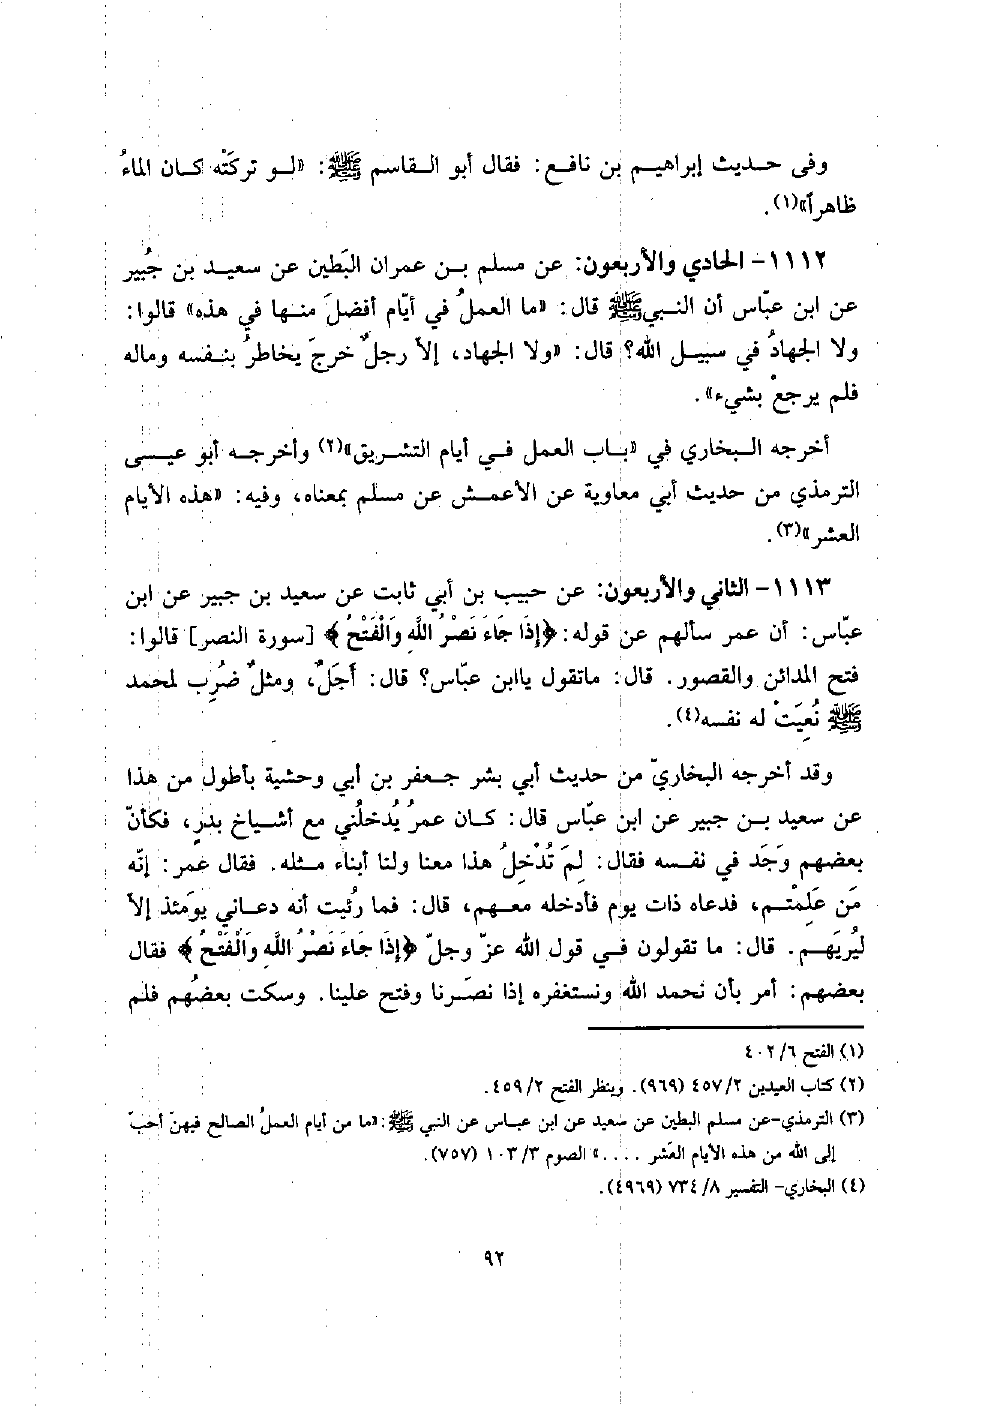 وفى حـديث إبراهيـم بن نافـع: فقال أبو الـقاسم ﷺ: «لـو تركَتْه كـان الماءُ
ظاهراً»(١).
١١١٢- الحادي والأربعون: عن مسلم بـن عمران البَطين عن سعيـد بن جُبير
عن ابن عبّاس أن النـبي ﷺ قال: «ما العملُ في أيّام أفضلَ منـها في هذه» قالوا:
ولا الجهادُ في سبيـل الله؟ قال: «ولا الجهاد، إلاّ رجلٌ خرجَ يخاطرُ بنـفسه وماله
فلم يرجعْ بشيء».
أخرجه الـبخاري في «بـاب العمل فـي أيام التشـريق»(٢) وأخرجـه أبو عيـسى
الترمذي من حديث أبي معاوية عن الأعمـش عن مسلم بمعناه، وفيه: «هذه الأيام
العشر»(٣).
١١١٣- الثاني والأربعون: عن حبيب بن أبي ثابت عن سعيد بن جبير عن ابن
عبّاس: أن عمر سألهم عن قوله: ﴿إِذَا جَاءَ نَصْرُ اللَّهِ وَالْفَتْحُ﴾ [سورة النصر] قالوا:
فتح المدائن والقصور. قال: ماتقول ياابن عبّاس؟ قال: أَجَلٌ، ومثلٌ ضُرِب لمحمد
ﷺ نُعِيَتْ له نفسه(٤).
وقد أخرجه البخاريّ من حديث أبي بشر جـعفر بن أبي وحشية بأطول من هذا
عن سعيد بـن جبير عن ابن عبّاس قال: كـان عمرُ يُدخلُني مع أشـياخ بدرٍ، فكأنّ
بعضهم وَجَد في نفـسه فقال: لِمَ تُدْخِلُ هذا معنا ولنا أبناء مـثله. فقال عمر: إنّه
مَن عَلِمْتـم، فدعاه ذات يوم فأدخله معـهم، قال: فما رُئيت أنه دعـاني يومَئذ إلاّ
ليُريَهـم. قال: ما تقولون فـي قول الله عزّ وجلّ ﴿إِذَا جَاءَ نَصْرُ اللَّهِ وَالْفَتْحُ﴾ فقال
بعضهم: أمر بأن نحمد الله ونستغفره إذا نصَرنا وفتح علينا. وسكت بعضُهم فلم
(١) الفتح ٦/ ٤٠٢
(٢) كتاب العيدين ٢/ ٤٥٧ (٩٦٩). وينظر الفتح ٢/ ٤٥٩.
(٣) الترمذي-عن مسلم البطين عن سعيد عن ابن عبـاس عن النبي ﷺ: «ما من أيام العملُ الصالح فيهنّ أحبّ
إلى الله من هذه الأيام العَشر ....» الصوم ٣/ ١٠٣ (٧٥٧).
(٤) البخاري- التفسير ٨/ ٧٣٤ (٤٩٦٩).
٩٢